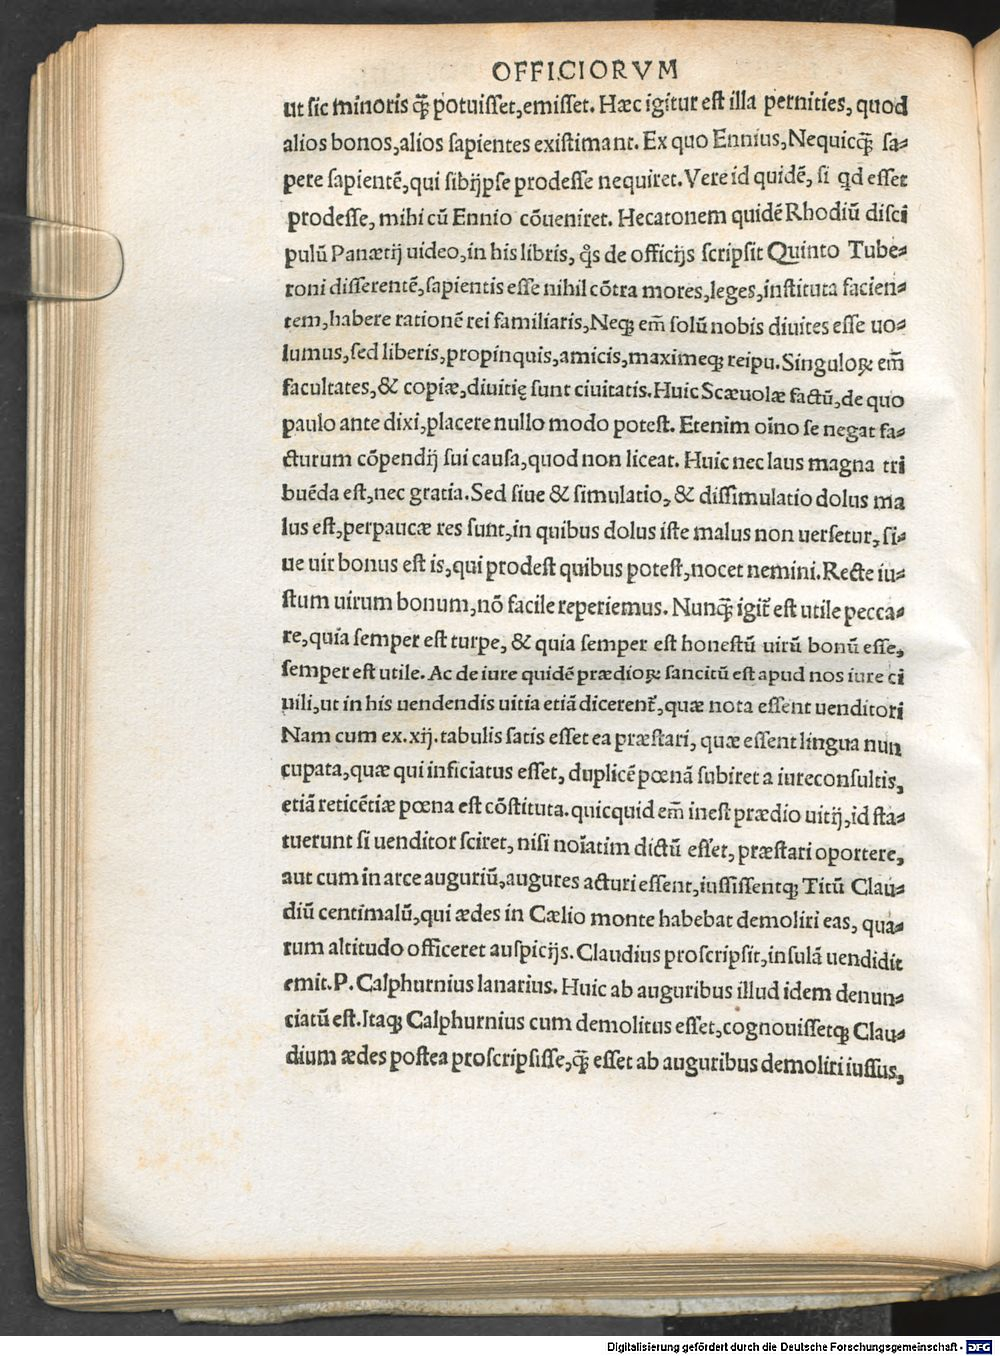 OFFICIORVM
ut sic minoris q̃ potuiſſet,emiſſet. Hæc igitur eſt illa pernities, quod
alios bonos,alios ſapientes exiſtimant. Ex quo Ennius,Nequicq̃ ſa-
pere ſapientẽ,qui ſibĳpſe prodeſſe nequiret. Vere id quidẽ, ſi qd eſſet
prodeſſe, mihi cũ Ennio cõueniret. Hecatonem quidẽ Rhodiũ diſci
pulũ Panætĳ uideo,in his libris, q̃s de officĳs ſcripſit Quinto Tube-
roni diſſerentẽ,ſapientis eſſe nihil cõtra mores,leges,inſtituta facien-
tem,habere rationẽ rei familiaris,Neqꝫ em̃ ſolũ nobis diuites eſſe uo-
lumus,ſed liberis,propinquis,amicis,maximeqꝫ reipu. Singuloꝝ em̃
facultates,& copiæ,diuitię ſunt ciuitatis.Huic Scæuolæ factũ,de quo
paulo ante dixi,placere nullo modo poteſt. Etenim oĩno ſe negat fa-
cturum cõpendĳ ſui cauſa,quod non liceat. Huic nec laus magna tri
buẽda eſt,nec gratia. Sed ſiue & ſimulatio, & diſſimulatio dolus ma
lus eſt,perpaucæ res ſunt,in quibus dolus iſte malus non uerſetur, ſi-
ue uir bonus eſt is,qui prodeſt quibus poteſt,nocet nemini.Recte iu-
ſtum uirum bonum,nõ facile reperiemus. Nunq̃ igit̃ eſt utile pecca-
re,quia ſemper eſt turpe, & quia ſemper eſt honeſtũ uirũ bonũ eſſe,
ſemper eſt utile. Ac de iure quidẽ prædioꝝ ſancitũ eſt apud nos iure ci
uili,ut in his uendendis uitia etiã dicerent̃,quæ nota eſſent uenditori
Nam cum ex.xĳ.tabulis ſatis eſſet ea præſtari, quæ eſſent lingua nun
cupata,quæ qui inficiatus eſſet, duplicẽ pœnã ſubiret a iureconſultis,
etiã reticẽtiæ pœna eſt cõſtituta.quicquid em̃ ineſt prædio uitĳ,id ſta-
tuerunt ſi uenditor ſciret, niſi noĩatim dictũ eſſet, præſtari oportere,
aut cum in arce auguriũ,augures acturi eſſent,iuſſiſſentqꝫ Titũ Clau-
diũ centimalũ,qui ædes in Cælio monte habebat demoliri eas, qua-
rum altitudo officeret auſpicĳs. Claudius proſcripſit,inſulã uendidit
emit.P. Calphurnius lanarius. Huic ab auguribus illud idem denun-
ciatũ eſt.Itaqꝫ Calphurnius cum demolitus eſſet,cognouiſſetqꝫ Clau-
dium ædes poſtea proſcripſiſſe,q̃ eſſet ab auguribus demoliri iuſſus,
Digitalisierung gefördert durch die Deutsche Forschungsgemeinschaft - DFG